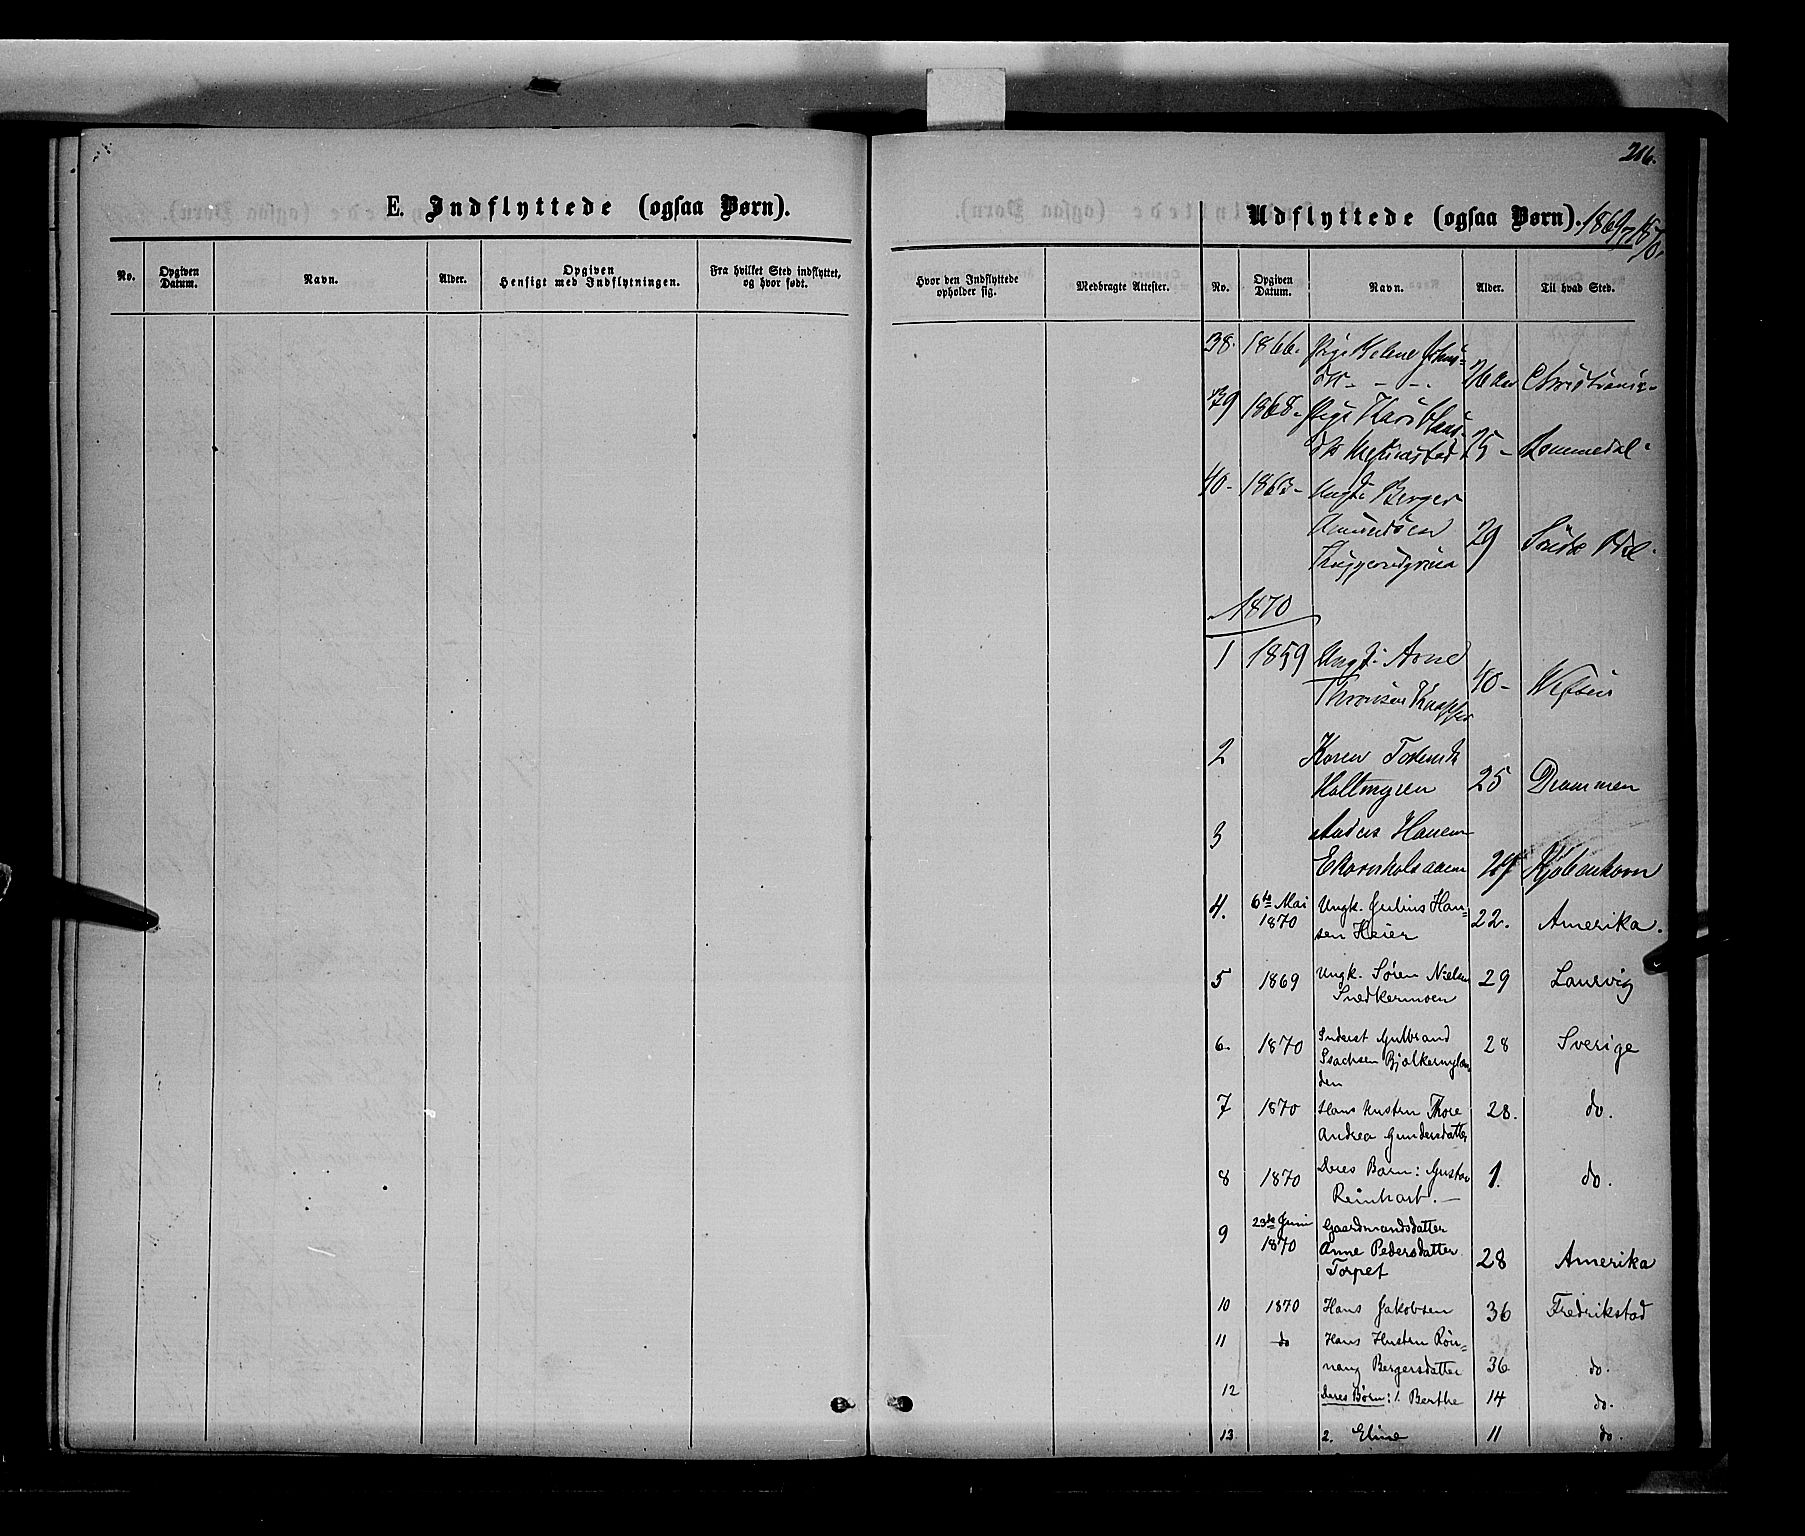 216.
E. Indflyttede (ogsaa Børn).
No.
Opgiven Datum.
Navn.
Alder.
Opgiven Hensigt med Indflytningen.
Fra hvilket Sted indflyttet, og hvor født.
Hvor den Indflyttede opholder sig.
Medbragte Attester.
Udflyttede (ogsaa Børn). 1869, 1870.
No.
Opgiven Datum.
Navn.
Alder.
Til hvad Sted.
38. 1866. Pige Helene
26 Christiania
39 1868. Pige
25 - Rommedal
40 - 1863 - Ungk. Berger
Amundsen 29 Søndre Odal
1870
1 1859 Ungk. Arne
Thronsen 40 -
2 Karen
25 Drammen
3 Anders Hansen
29 Kjøbenhavn
4. 6te Mai 1870 Ungk. Julius Han-
sen Heier 22. Amerika.
5 1869 Ungk. Søren Nielsen 29 Laurvig
Snedkermoen
6. 1870 Inderst Gulbrand 28 Sverige
Isachsen
7 1870 Hans Hustru Thore 28. do.
Andrea Gundersdatter
8 1870 Deres Barn: Gustav 1. do.
Reinhart. -
9 23de Juni 1870 Gaardmandsdatter
Anne Pedersdatter 28 Amerika
Torpet
10 1870 Hans Jakobsen 36 Fredrikstad
11 do Hans Hustru Røn-
naug Bergersdatter 36 do.
12 Deres Børn: 1. Berthe 14 do.
13 2. Eline 11 do.